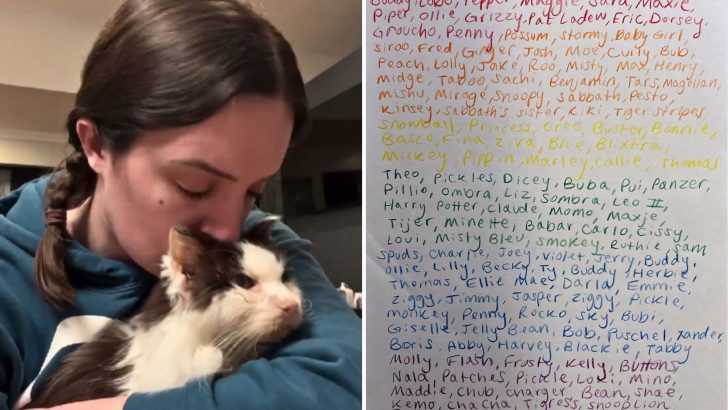 Buddy, Lobo, Pepper, Maggie, Sara, Maxie,
Piper, Ollie, Grizzy, Pat Ladew, Eric, Dorsey,
Groucho, Penny, Possum, Stormy, Baby Girl,
Siroo, Fred, Ginger, Josh, Moe, Curly Bub,
Peach, Lolly, Jake, Roo, Misty, Max, Henry,
Midge, Taboo, Sachi, Benjamin, Tars, Magellan,
Mishu, Mirage, Snoopy, Sabbath, Pesto,
Kinsey, Sabbath's sister, Kiki, Tiger stripes,
Snowball, Princess, Oreo, Buster, Bonnie,
Basco, Fina, Ziva, Blue, Blixtra,
Mickey, Pippin, Marley, Callie, Thomas
Theo, Pickles, Dicey, Buba, Pui, Panzer,
Pillio, Ombra, Liz, Sombra, Leo II,
Harry Potter, Claude, Momo, Maxje,
Tijer, Minette, Babar, Carlo, Cissy,
Lovi, Misty Bleu, Smokey, Ruthie, Sam
Spuds, Charlie, Joey, Violet, Jerry, Buddy,
Ollie, Lilly, Becky, Ty, Buddy, Herbie,
Thomas, Ellie Mae, Darla, Emmie,
Ziggy, Jimmy, Jasper, Ziggy, Pickle,
monkey, Penny, Rocko, Sky, Bubi,
Giselle, Jelly Bean, Bob, Fuschel, Xander,
Boris, Abby, Harvey, Blackie, Tabby
Molly, Flash, Frosty, Kelly, Buttons,
Nala, Patches, Pickle, Loki, Mino,
Maddie, Chub, Charger, Bean, Shae,
Kemo, ChaCha, Tigress, Snooplion